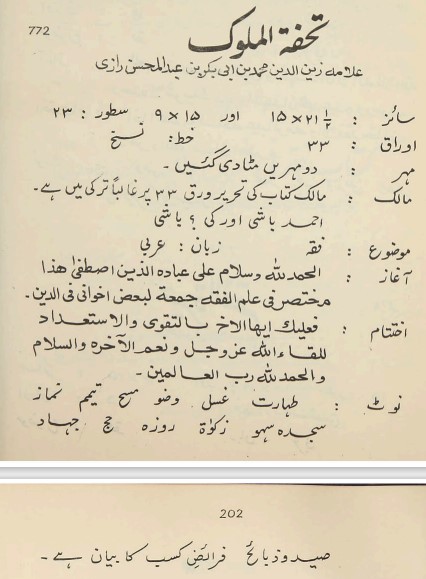 772
تحفة الملوك
علامہ زین الدین محمد بن ابی بکر بن عبد المحسن رازی
سائز : ۲۱ ۱/۲ × ۱۵ اور ۱۵ × ۹ سطور : ۲۳
اوراق : ۳۳ خط : نسخ
مہر : دو مہریں مٹا دی گئیں ۔
مالک : مالک کتاب کی تحریر ورق ۳۳ پر غالباً ترکی میں ہے ۔
احمد باشی اور کی ؟ باشی
موضوع : فقہ زبان : عربی
آغاز : الحمد للہ وسلام علی عبادہ الذین اصطفیٰ ھذا
مختصر فی علم الفقہ جمعة لبعض اخوانی فی الدین ۔
اختتام : فعلیك ایھا الاخ بالتقوی والاستعداد
للقاء اللہ عز وجل ونعم الآخرہ والسلام
والحمد للہ رب العالمین ۔
نوٹ : طہارت غسل وضو مسح تیمم نماز
سجدہ سہو زکوٰة روزہ حج جہاد
202
صید و ذبائح فرائض کسب کا بیان ہے ۔